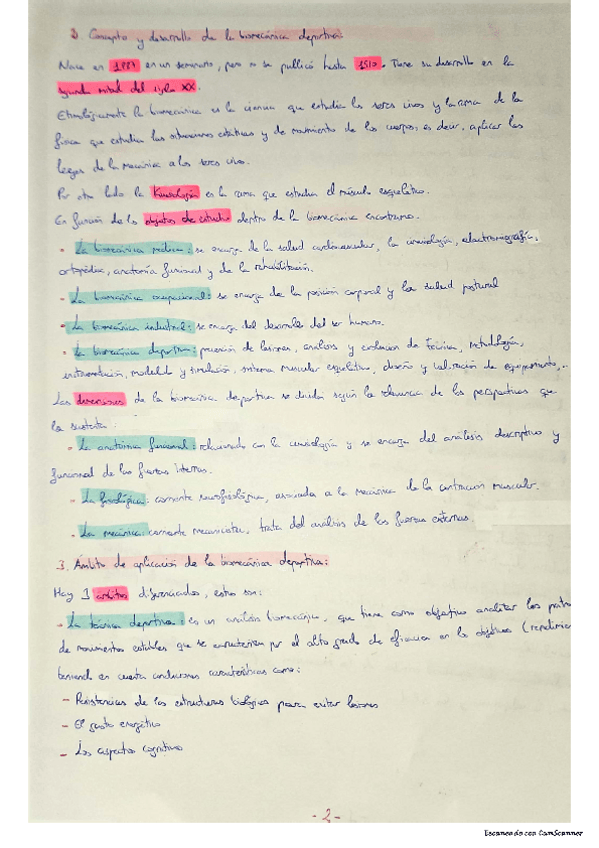 2. Concepto y desarrollo de la biomecánica deportiva:
Nace en en un seminario, pero no se publicó hasta Tiene su desarrollo en la
segunda mitad del siglo XX.
Etimológicamente la biomecánica es la ciencia que estudia los seres vivos y la rama de la
física que estudia las situaciones estáticas y de movimiento de los cuerpos, es decir, aplicar las
leyes de la mecánica a los seres vivos.
Por otro lado la Kinesiología es la rama que estudia el músculo esquelético.
En función de los objetos de estudio dentro de la biomecánica encontramos.
- La biomecánica médica: se encarga de la salud cardiovascular, la kinesiología, electromiografía,
ortopédica, anatomía funcional y de la rehabilitación.
- La biomecánica ocupacional: se encarga de la posición corporal y la salud postural
- La biomecánica industrial: se encarga del desarrollo del ser humano.
- La biomecánica deportiva: prevención de lesiones, análisis y evaluación de técnica, metodología,
instrumentación, modelado y simulación, sistema muscular esquelético, diseño y valoración de equipamiento,...
Las de la biomecánica deportiva se dividen según la relevancia de las perspectivas que
la sustenta:
- La anatómica funcional: relacionado con la kinesiología y se encarga del análisis descriptivo y
funcional de las fuerzas internas.
- La fisiológica: corriente neurofisiológica, asociada a la mecánica de la contracción muscular.
- La mecánica: corriente mecanicista, trata del análisis de las fuerzas externas.
3. Ámbito de aplicación de la biomecánica deportiva:
Hay 3 ámbitos diferenciados, estos son:
- La técnica deportiva: es un análisis biomecánico, que tiene como objetivo analizar los
de movimientos estables que se caracterizan por el alto grado de eficacia en los objetivos
teniendo en cuenta condiciones características como:
- Resistencias de las estructuras biológicas para evitar lesiones
- El gasto energético
- Los aspectos cognitivos
-2-
Escaneado con CamScanner